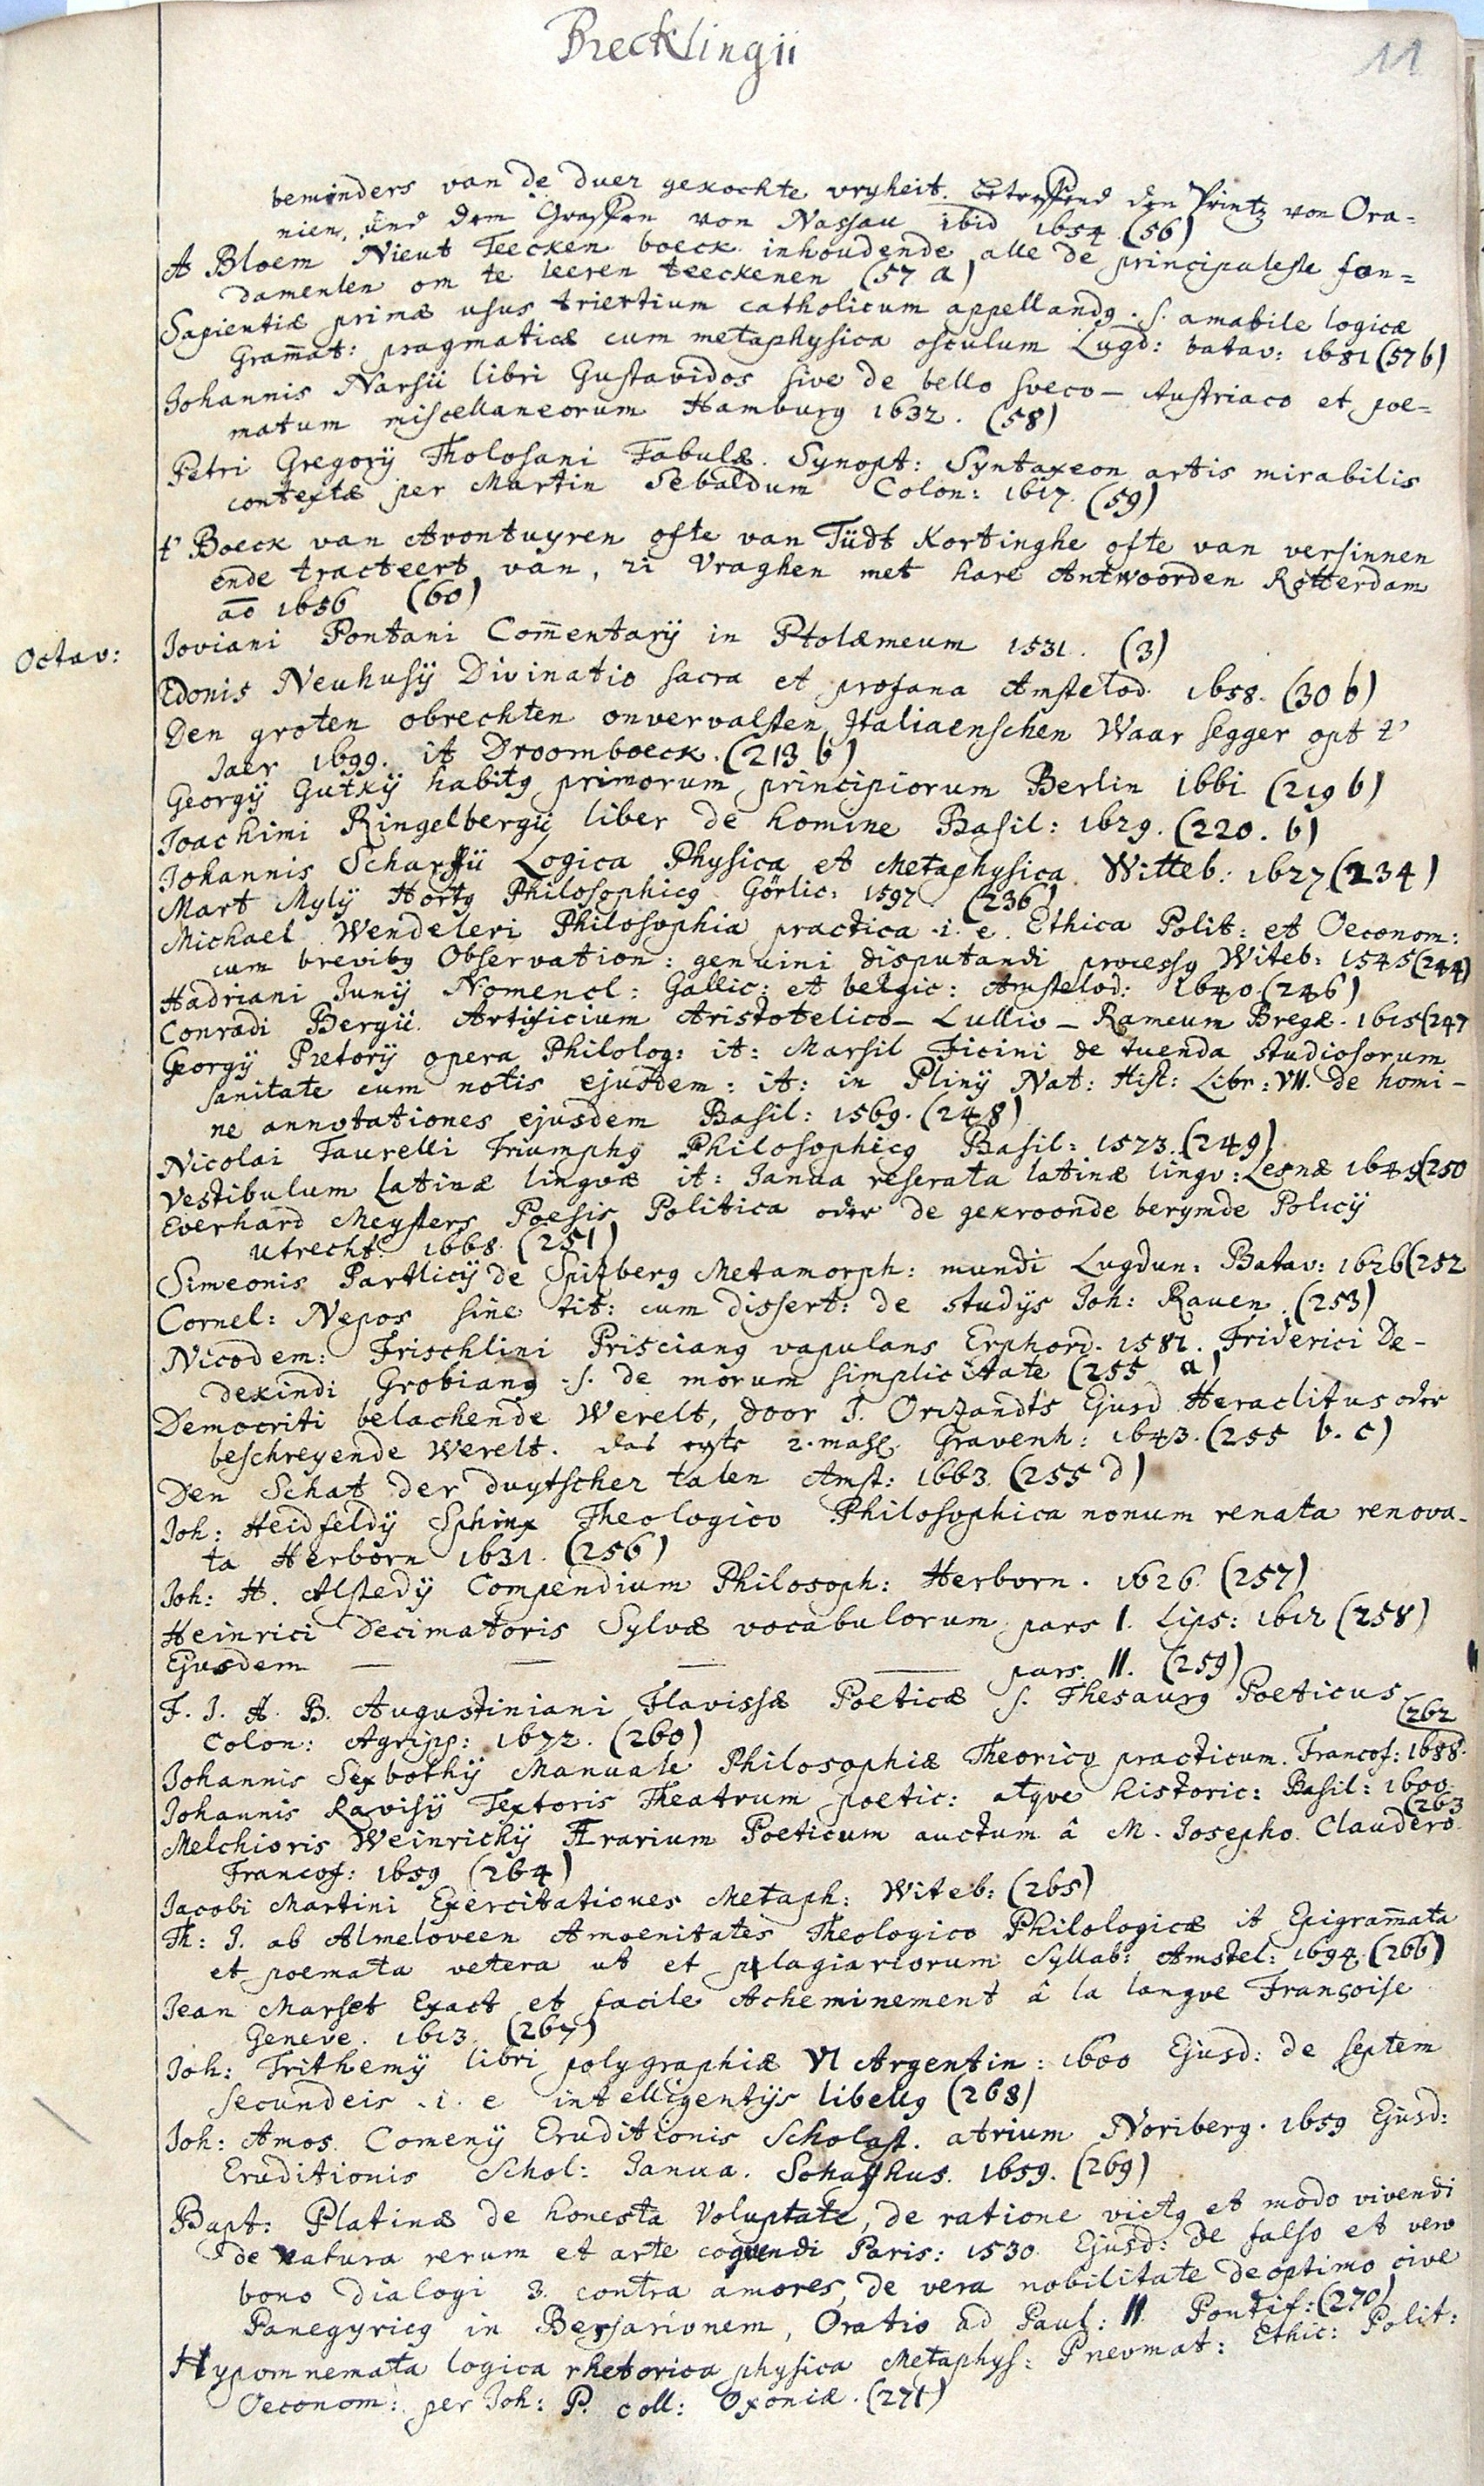 Brecklingii
11
beminders van de duer gekochte vryheit. betreffend den Printz von Ora=
nien, und dem Graffen von Nassau ibid 1654 (56)
A Bloem Nieut Teecken boeck inhoudende alle de principaleste fon=
damenten om te leeren teeckenen (57 a)
Sapientiæ primæ usus triertium catholicum appellandg. s. amabile logicæ
Gram̄at: pragmaticæ cum metaphysica osculum Lugd: batav: 1681 (57 b)
Johannis Narsii libri Gustavidos sive de bello sveco-Austriaco et poe=
matum miscellaneorum Hamburg 1632. (58)
Petri Gregorÿ Tholosani Fabulæ. Synopt: Syntaxeon artis mirabilis
contextæ per Martin Sebaldum Colon: 1617. (59)
t' Boeck van Avontuyren ofte van Tüdt Kortinghe ofte van versinnen
ende tracteert van, 21 Vraghen met hare Antwoorden Rotterdam
aō 1656 (60)
Octav:
Joviani Pontani Com̄entarÿ in Ptolæmeum 1531. (3)
Edonis Neuhusÿ Divinatio sacra et profana Amstelod. 1658. (30 b)
Den groten obrechten onvervalsten Italiaenschen Waar segger opt t'
Jaer 1699. it Droomboeck. (213 b)
Georgÿ Gutkÿ habitg primorum principiorum Berlin 1661 (219 b)
Joachimi Ringelbergÿ liber de homine Basil: 1629. (220. b)
Johannis Scharffii Logica Physica et Metaphysica Witteb: 1627 (234)
Mart Mylÿ Hortg Philosophicg Görlic: 1597. (236)
Michael Wendeleri Philosophia practica .i. e. Ethica Polit: et Oeconom:
cum brevibg Observation: genuini disputandi processg Witeb: 1545 (244)
Hadriani Junÿ Nomencl: Gallic: et belgic: Amstelod: 1640. (246)
Conradi Bergii Artificium Aristotelico-Lullio-Rameum Bregæ. 1615 (247
Georgÿ Pictorÿ opera Philolog: it: Marsil Ficini de tuenda studiosorum
sanitate cum notis ejusdem: it: in Plinÿ Nat: Hist: Libr: VII. de homi-
ne annotationes ejusdem Basil: 1569. (248)
Nicolai Taurelli Triumphg Philosophicg Basil: 1573. (249)
Vestibulum Latinæ lingvæ it: Janua reserata latinæ lingv: Lesnæ 1649 (250
Everhard Meysters Poesis Politica oder de gekroonde berymde Policÿ
Utrecht. 1668. (251)
Simeonis Partlicÿ de Spitzberg Metamorph: mundi Lugdun: Batav: 1626 (252
Cornel: Nepos sine tit: cum dissert: de studÿs Joh: Rauen. (253)
Nicodem: Frischlini Prisciang vapulans Erphord. 1581. Friderici De-
dekindi Grobiang .s. de morum simplicitate (255 a)
Democriti belachende Werelt, door J. Orizandts Ejusd Heraclitus oder
beschreyende Werelt. das erste 2. mahl. Gravenh: 1643. (255 b. c)
Den Schat der duytscher talen Amst: 1663. (255 d)
Joh: Heidfeldÿ Sphinx Theologico Philosophica nonum renata renova-
ta Herborn 1631. (256)
Joh: H. Alstedÿ Compendium Philosoph: Herborn. 1626. (257)
Heinrici Decimatoris Sylvæ vocabulorum pars I. Lips: 1612 (258)
Ejusdem — — — — pars. II. (259)
F. J. A. B. Augustiniani Flavissæ Poeticæ s. Thesaurg Poeticus
Colon: Agripp: 1672. (260)
(262
Johannis Sexbothÿ Manuale Philosophiæ Theorico practicum. Francof: 1688.
Johannis Ravisÿ Textoris Theatrum poetic: atqve historic: Basil: 1600.
(263
Melchioris Weinrichÿ Ærarium Poeticum auctum â M. Josepho. Claudero.
Francof: 1659 (264)
Jacobi Martini Exercitationes Metaph: Witeb: (265)
Th: J. ab Almeloveen Amoenitates Theologico Philologicæ it Epigram̄ata
et poemata vetera ut et plagiariorum Syllab: Amstel: 1694. (266)
Jean Marset Exact et facile Acheminement â la langve Françoise
Geneve. 1613. (267)
Joh: Trithemÿ libri polygraphiæ VI Argentin: 1600 Ejusd: de septem
secundeis .i. e intelligentÿs libellg (268)
Joh: Amos Comenÿ Eruditionis Scholast. atrium Noriberg. 1659 Ejusd:
Eruditionis Schol: Janua. Schaffhus. 1659. (269)
Bapt: Platinæ de honesta Voluptate, de ratione victg et modo vivendi
de natura rerum et arte coqvendi Paris: 1530. Ejusd: De falso et vero
bono dialogi 3. contra amores, de vera nobilitate de optimo cive
Panegyricg in Bessarionem, Oratio ad Paul: II. Pontif: (270)
Hypomnemata logica rhetorica physica Metaphys: Pnevmat: Ethic: Polit:
Oeconom: per Joh: P. coll: Oxoniæ. (271)